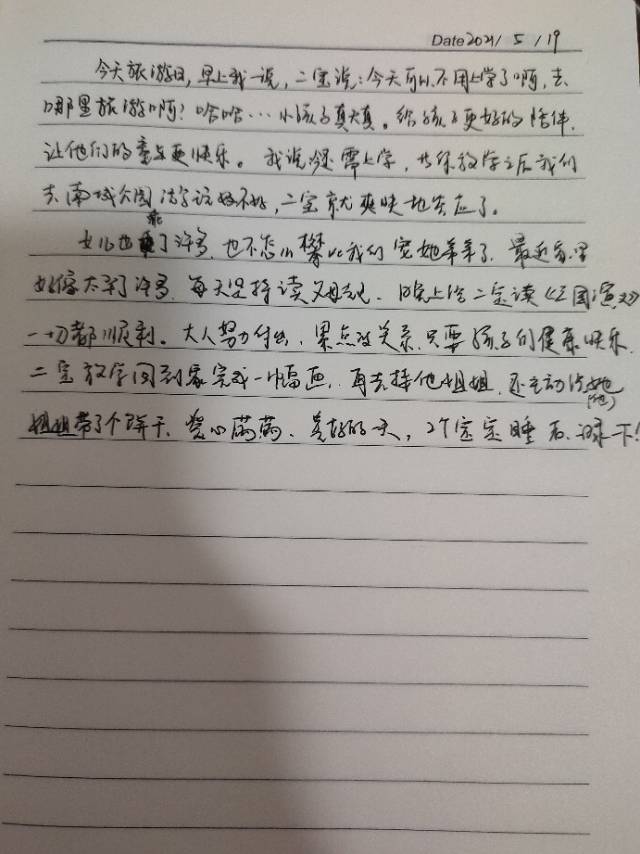 Date 2021 / 5 / 19
今天旅游日,早上我一说,二宝说:今天可以不用上学了啊,去
哪里旅游啊?哈哈…小孩子真天真。给孩子更好的陪伴,
让他们的童年更快乐。我说还需上学,等你放学之后我们
去南城公园活动好不好,二宝就爽快地答应了。
女儿也乖了许多,也不怎么攀比我们宠她弟弟了,最近家里
好像太平了许多,每天坚持读父母规、晚上给二宝读《三国演义》
一切都顺利。大人努力付出,累点没关系,只要孩子们健康快乐。
二宝放学回到家完成一幅画,再去接他姐姐,还主动给她(他)
姐姐带了个饼干、爱心满满、美好的一天,2个宝宝睡后,记录一下!